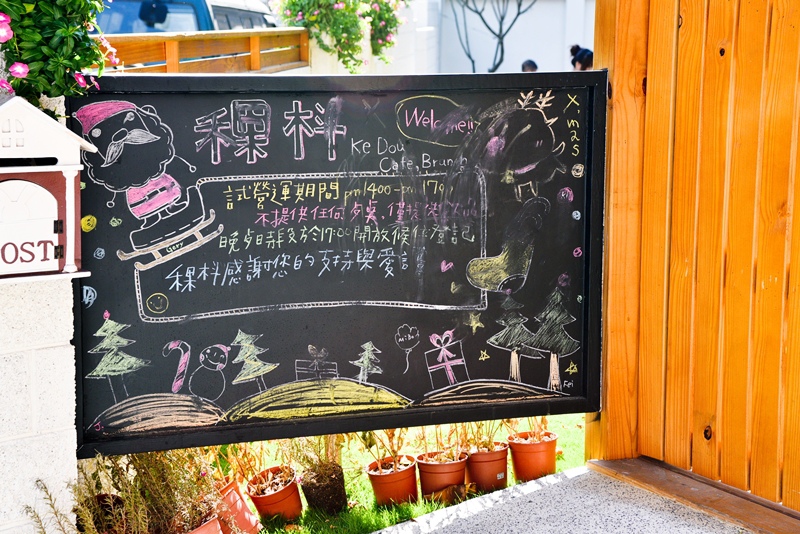 稞枓
Welcome!!
X'mas
Ke Dou
Cafe, Brunch
試營運期間 pm 1400-pm 1700
不提供任何桌, 僅提供
晚時段於17:00開放候位登記
稞枓感謝您的支持與愛
Gary
OST
Fei